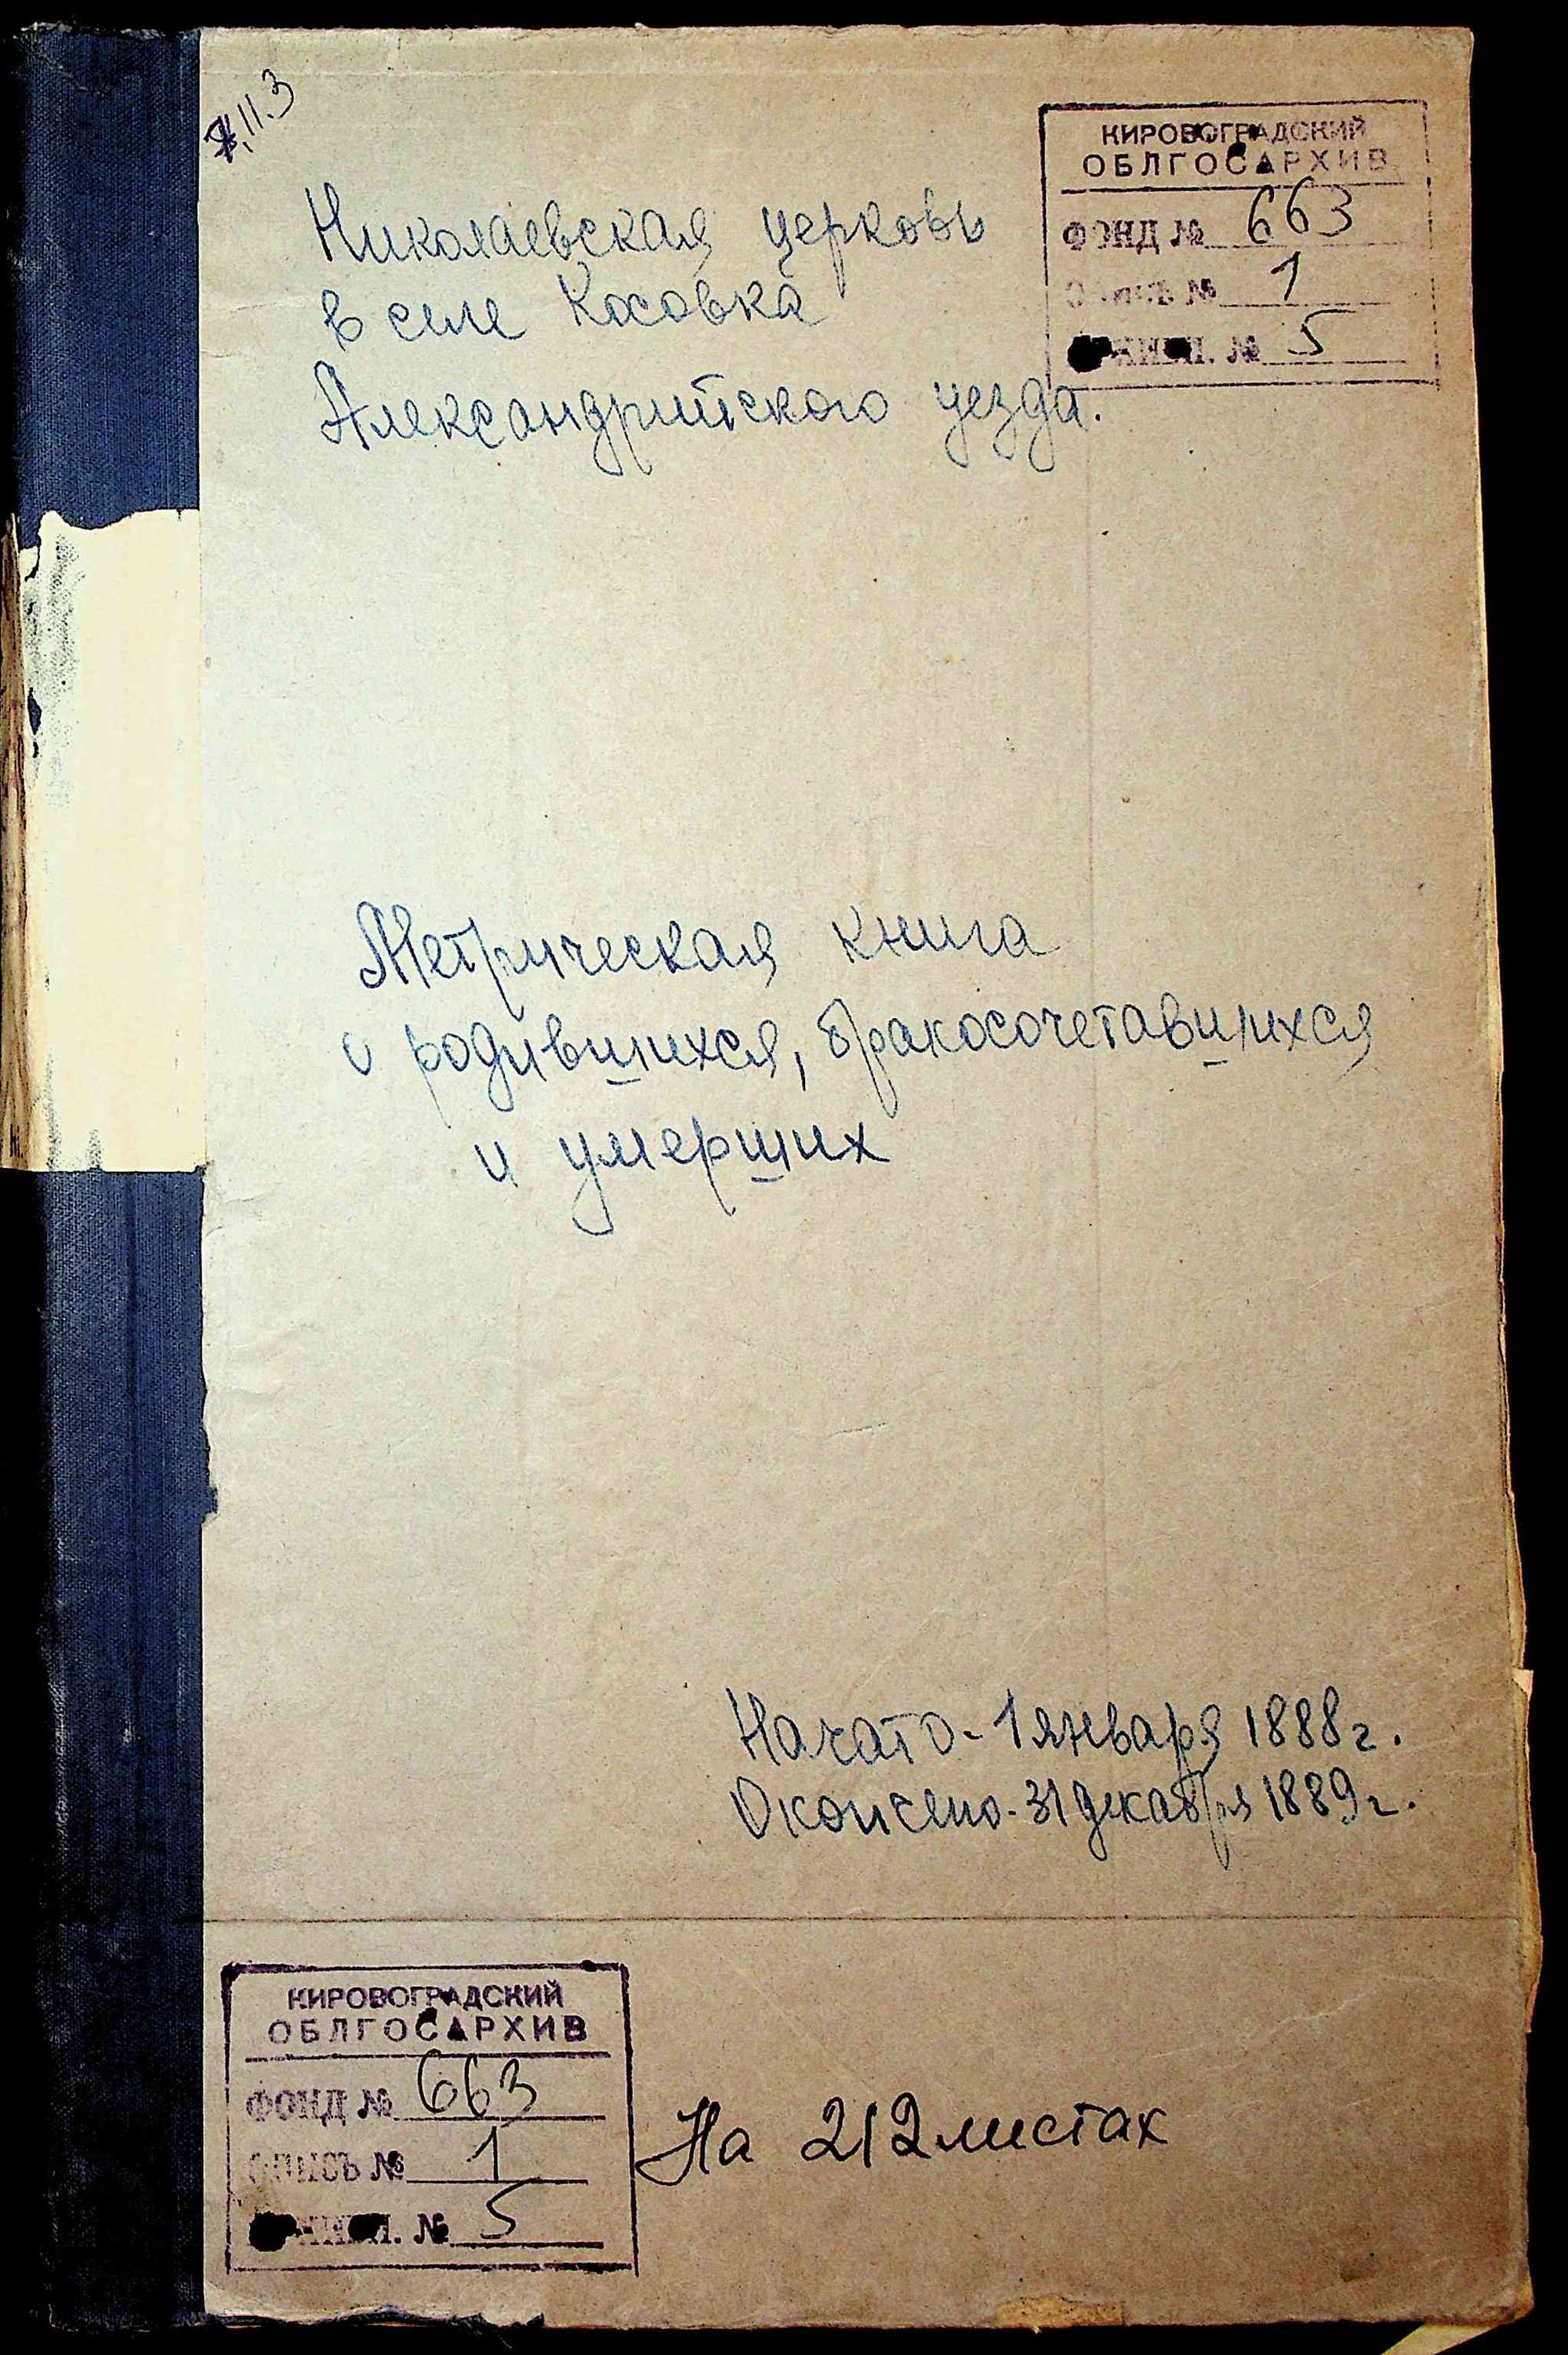 II.3
КИРОВОГРАДСКИЙ
ОБЛГОСАРХИВ
ФОНД № 663
ОПИСЬ № 1
№ 5
Николаевская церковь
в селе Косовка
Александрийского уезда.
Метрическая книга
о родившихся, бракосочетавшихся
и умерших
Начато - 1 января 1888 г.
Окончено - 31 декабря 1889 г.
КИРОВОГРАДСКИЙ
ОБЛГОСАРХИВ
ФОНД № 663
ОПИСЬ № 1
№ 5
На 212 листах